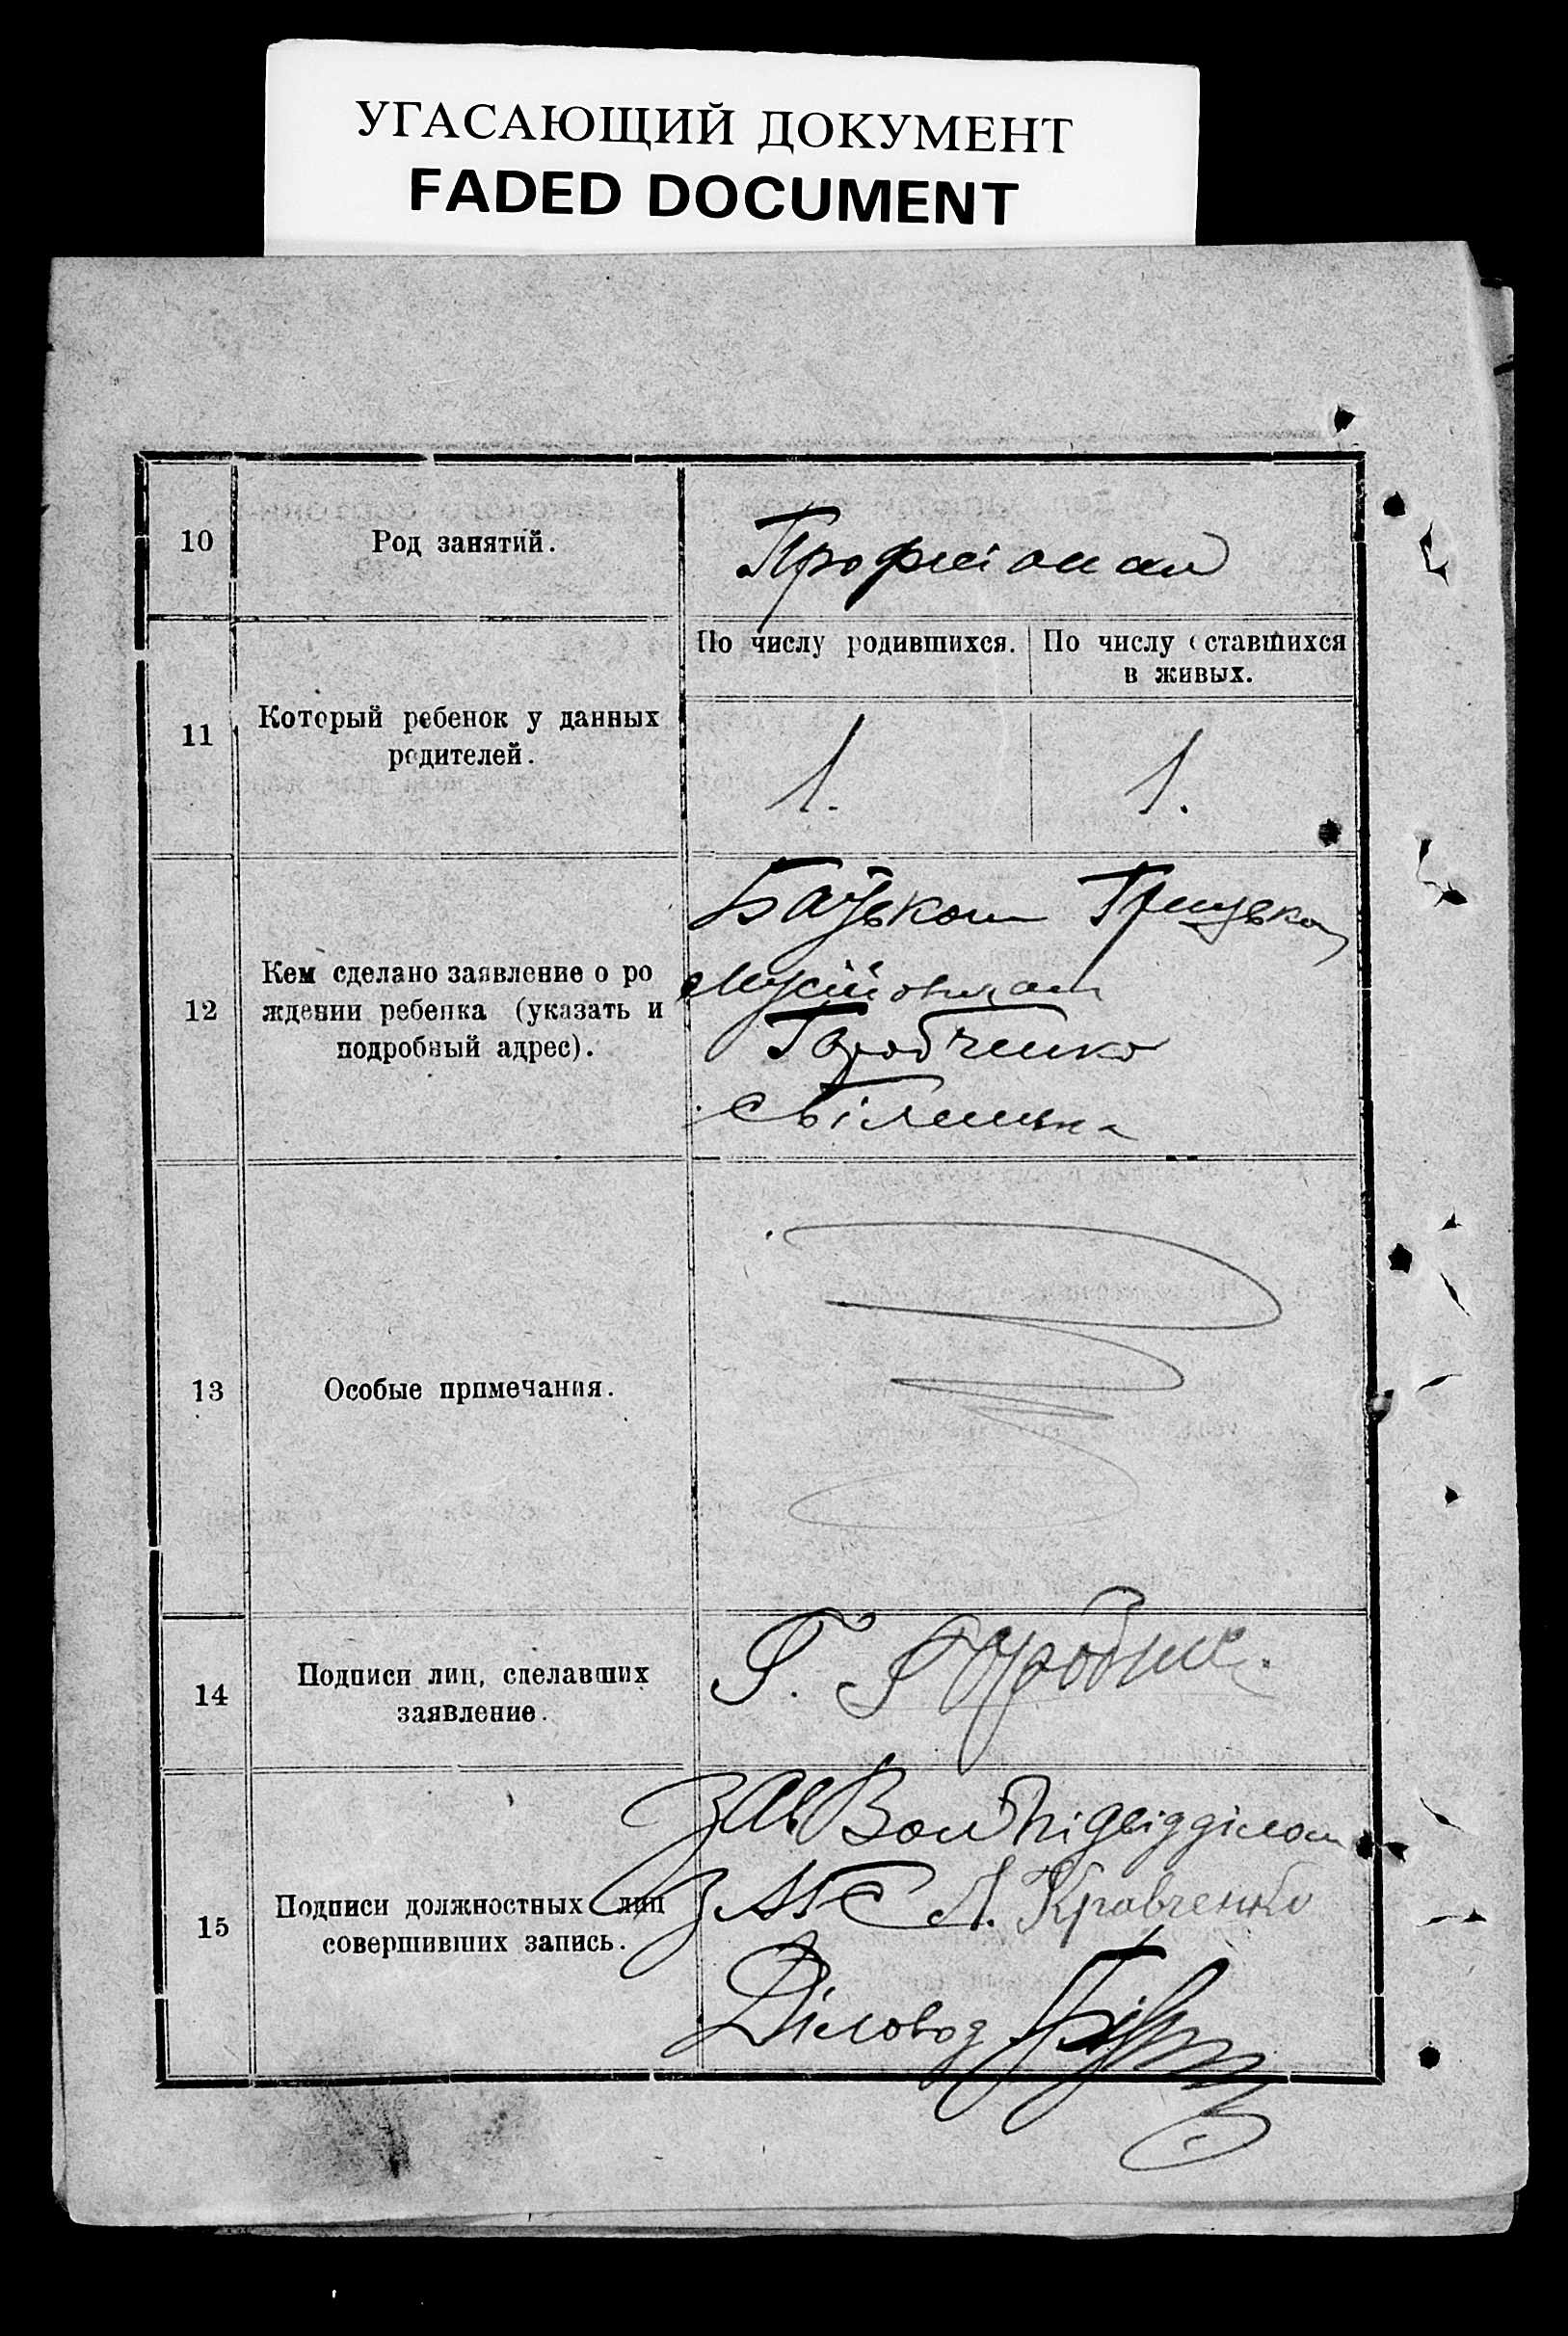 УГАСАЮЩИЙ ДОКУМЕНТ
FADED DOCUMENT
10
Род занятий.
11
Который ребенок у данных
родителей.
По числу родившихся.
По числу оставшихся
в живых.
1.
1.
12
Кем сделано заявление о ро
ждении ребенка (указать и
подробный адрес).
Батьком Грицьком
Горобченко
13
Особые примечания.
14
Подписи лиц, сделавших
заявление.
Г.
15
Подписи должностных лиц
совершивших запись.
Зав Вол Підвідділом
ЗАГС А. Кравченко
Діловод